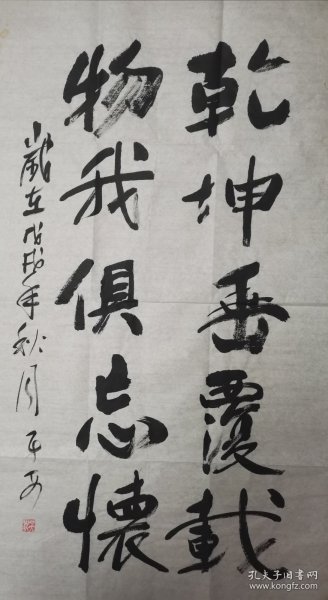 乾坤垂覆載
物我俱忘懷
歲在戊戌年秋月平安
孔夫子旧书网